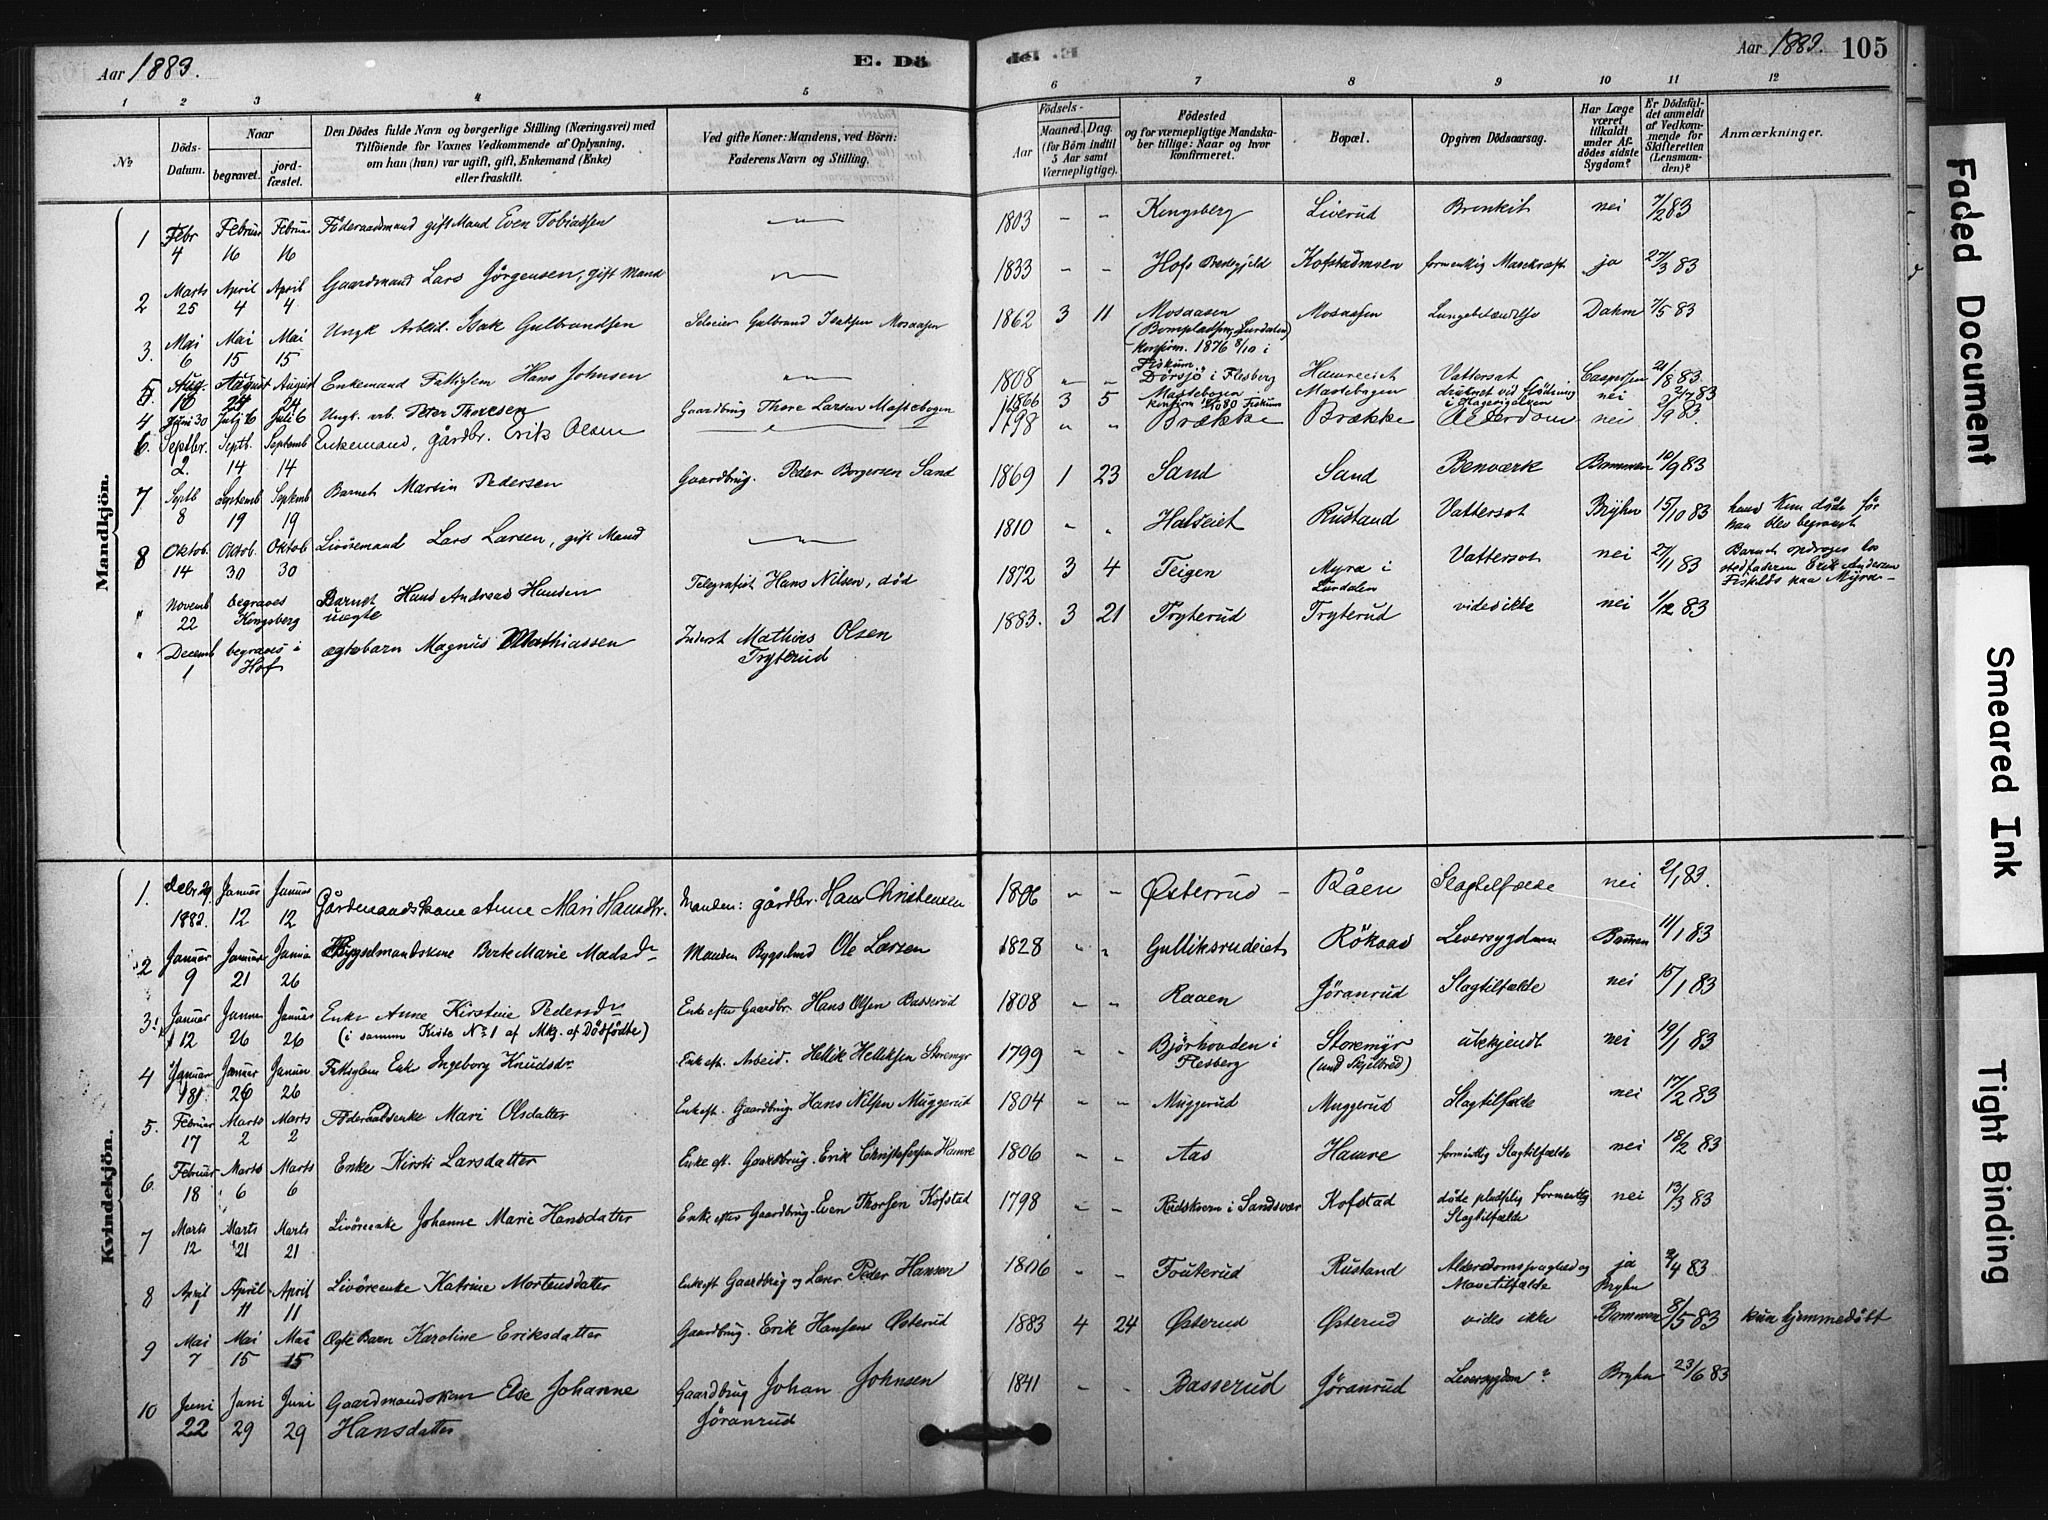 Aar 1883.
E. Dö
de. E.
Aar 1883.
105
1 2 3 4 5 6 7 8 9 10 11 12
No
Döds-Datum.
Naar
begravet.
jord-fæstet.
Den Dödes fulde Navn og borgerlige Stilling (Næringsvei) med
Tilföiende for Voxnes Vedkommende af Oplysning,
om han (hun) var ugift, gift, Enkemand (Enke)
eller fraskilt.
Ved gifte Koner: Mandens, ved Börn:
Faderens Navn og Stilling.
Födsels-
Aar
Maaned. Dag.
(for Börn indtil
5 Aar samt
Værnepligtige).
Födested
og for værnepligtige Mandska-
ber tillige: Naar og hvor
konfirmeret.
Bopæl.
Opgiven Dödsaarsag.
Har Læge
været
tilkaldt
under Af-
dödes sidste
Sygdom?
Er Dödsfal-
det anmeldt
af Vedkom-
mende for
Skifteretten
(Lensman-
den)?
Anmærkninger.
Mandkjön.
1 Febr 4 Februar 16 Februar 16 Föderaadsmand gift Mand Even Tobiassen 1803 - - Kongsberg Liverud Bronkit nei 7/2 83
2 Marts 25 April 4 April 4 Gaardmand Lars Jörgensen, gift Mand 1833 - - Hofs Kofstadmoen formentlig Mavekræft ja 27/3 83
3. Mai 6 Mai 15 Mai 15 Ungk Arbeid. Isak Gulbrandsen Selveier Gulbrand Isaksen Mosaasen 1862 3 11 Mosaasen (Bomplads Lurdalen) Konfirm. 1876 8/10 i Fiskum Mosaasen Lungebetændelse Dahm 7/5 83
5. Aug. 16 August 24 August 24 Enkemand Fattiglem Hans Johnsen 1808 " " Dörsjö i Flesberg Hamreeiet Vattersot Caspersen 21/8 83
4 Juni 30 Juli 6 Juli 6 Ungk. arb. Peter Thoresen Gaardbrug Thore Larsen Mastebogen 1866 3 5 Mastebogen Konfirm 80 Fiskum Mastebogen druknet ved Flödning i nei 83
6. Septbr. 2. Septb. 14 Septemb 14 Enkemand, gårdbr. Erik Olsen 1798 " " Brække Brække Alderdom nei 83.
7 Septb 8 Septemb 19 Septemb 19 Barnet Martin Pedersen Gaardbrug. Peder Borgersen Sand 1869 1 23 Sand Sand Benværk Bommen 10/9 83
8 Oktob. 14 Oktob. 30 Oktob 30 Livöremand Lars Larsen, gift Mand 1810 " " Halseiet Rustand Vattersot Bryhn 15/10 83 hans Kone döde för han blev begravet
" Novemb 22 begraves Kongsberg Barnet Hans Andreas Hansen uægte Telegrafist Hans Nilsen, död 1872 3 4 Teigen Myra i Lurdalen Vattersot nei 27/11 83 Barnet opdroges hos stedfaderen Erik Andersen paa Myra
" Decemb 1 begraves i Hof ægtebarn Magnus Mathiassen Inderst Mathias Olsen Tryterud 1883. 3 21 Tryterud Tryterud vides ikke nei 1/12 83
Kvindekjön.
1. decbr. 29. 1882. Januar 12 Januar 12 Gårdmandskone Anne Mari Hansdtr. Manden: gårdbr. Hans Christensen 1806 - - Østerrud Råen Slagtilfælde nei 2/1 83.
2 Januar 9 Januar 21 Januar 26 Bygselmandskone Berte Marie Madsdr Manden Bygselmd Ole Larsen 1828 " " Gulliksrudeiet Rökaas Leversygdom Bommen 11/1 83
3. Januar 12 Januar 26 Januar 26 Enke Anne Kirstine Pedersdr (i samme Kiste No 1 af Mkj. af Dödfödte) Enke efter Gaardbr. Hans Olsen Basserud 1808 - - Raaen Jöranrud Slagtilfælde nei 15/1 83
4 Januar 18 Januar 26 Januar 26 Fattiglem Enke Ingeborg Knudsdr Enke eft. Arbeid. Hellik Helliksen Storemyr 1799 " " Björhovden i Flesberg Storemyr (und Skjelbred) ubekjendt nei 19/1 83
5. Februar 17 Marts 2 Marts 2 Föderaadsenke Mari Olsdatter Enke eft. Gaardbrug. Hans Nilsen Muggerud 1804 - - Muggerud Muggerud Slagtilfælde nei 17/2 83
6. Februar 18 Marts 6 Marts 6 Enke Kirsti Larsdatter Enke eft. Gaardbrug. Erik Christofersen Hamre 1806 " " Aas Hamre formentlig Slagtilfælde nei 18/2 83
7 Marts 12 Marts 21 Marts 21 Livöreenke Johanne Marie Hansdatter Enke efter Gaardbrug. Even Thorsen Kofstad 1798 " - Rudskvern i Sandsvær Kofstad döde pludselig formentlig Slagtilfælde nei 13/3 83
8 April 1 April 11 April 11 Livöreenke Katrine Mortensdatter Enke eft. Gaardbrug og Lærer Peder Hansen 1806 - - Fouterud Rustand Alderdomssvaghed og Mavetilfælde ja Bryhn 2/4 83
9 Mai 7 Mai 15 Mai 15 Ægte Barn Karoline Eriksdatter Gaardbrug. Erik Hansen Østerud 1883 4 24 Østerud Østerud vides ikke Bommen 8/5 83 kun hjemmedöbt
10 Juni 22 Juni 29 Juni 29 Gaardmandskone Else Johanne Hansdatter Gaardbrug Johan Johnsen Jöranrud 1841 - - Basserud Jöranrud Leversygdom? Bryhn 23/6 83
Faded Document
Smeared Ink
Tight Binding